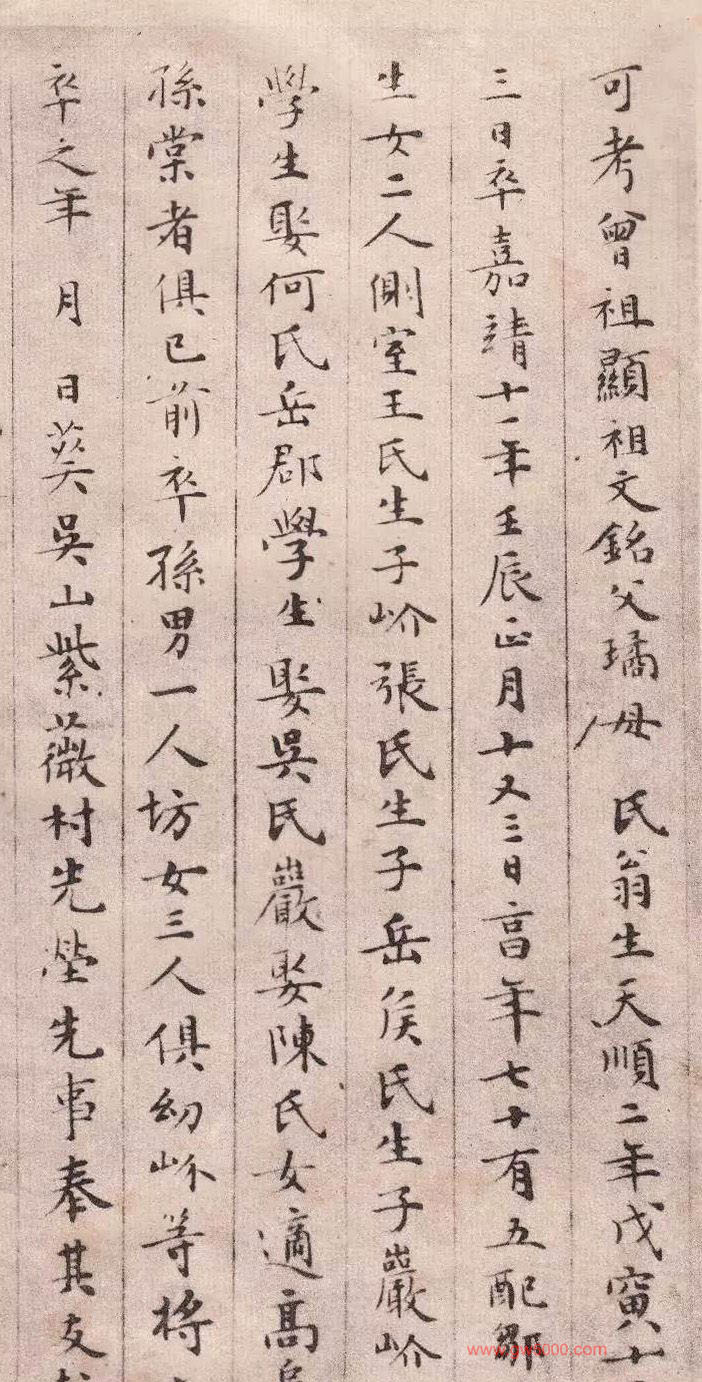 可考曾祖顯祖文銘父璚母 氏翁生天順二年戊寅十
三日卒嘉靖十一年壬辰正月十又三日享年七十有五配鄒
生女二人側室王氏生子岕張氏生子岳侯氏生子巖岕
學生娶何氏岳郡學生娶吳氏巖娶陳氏女適高
孫棠者俱已前卒孫男一人坊女三人俱幼岕等將
卒之年 月 日葬吳山紫薇村先塋先事奉其友